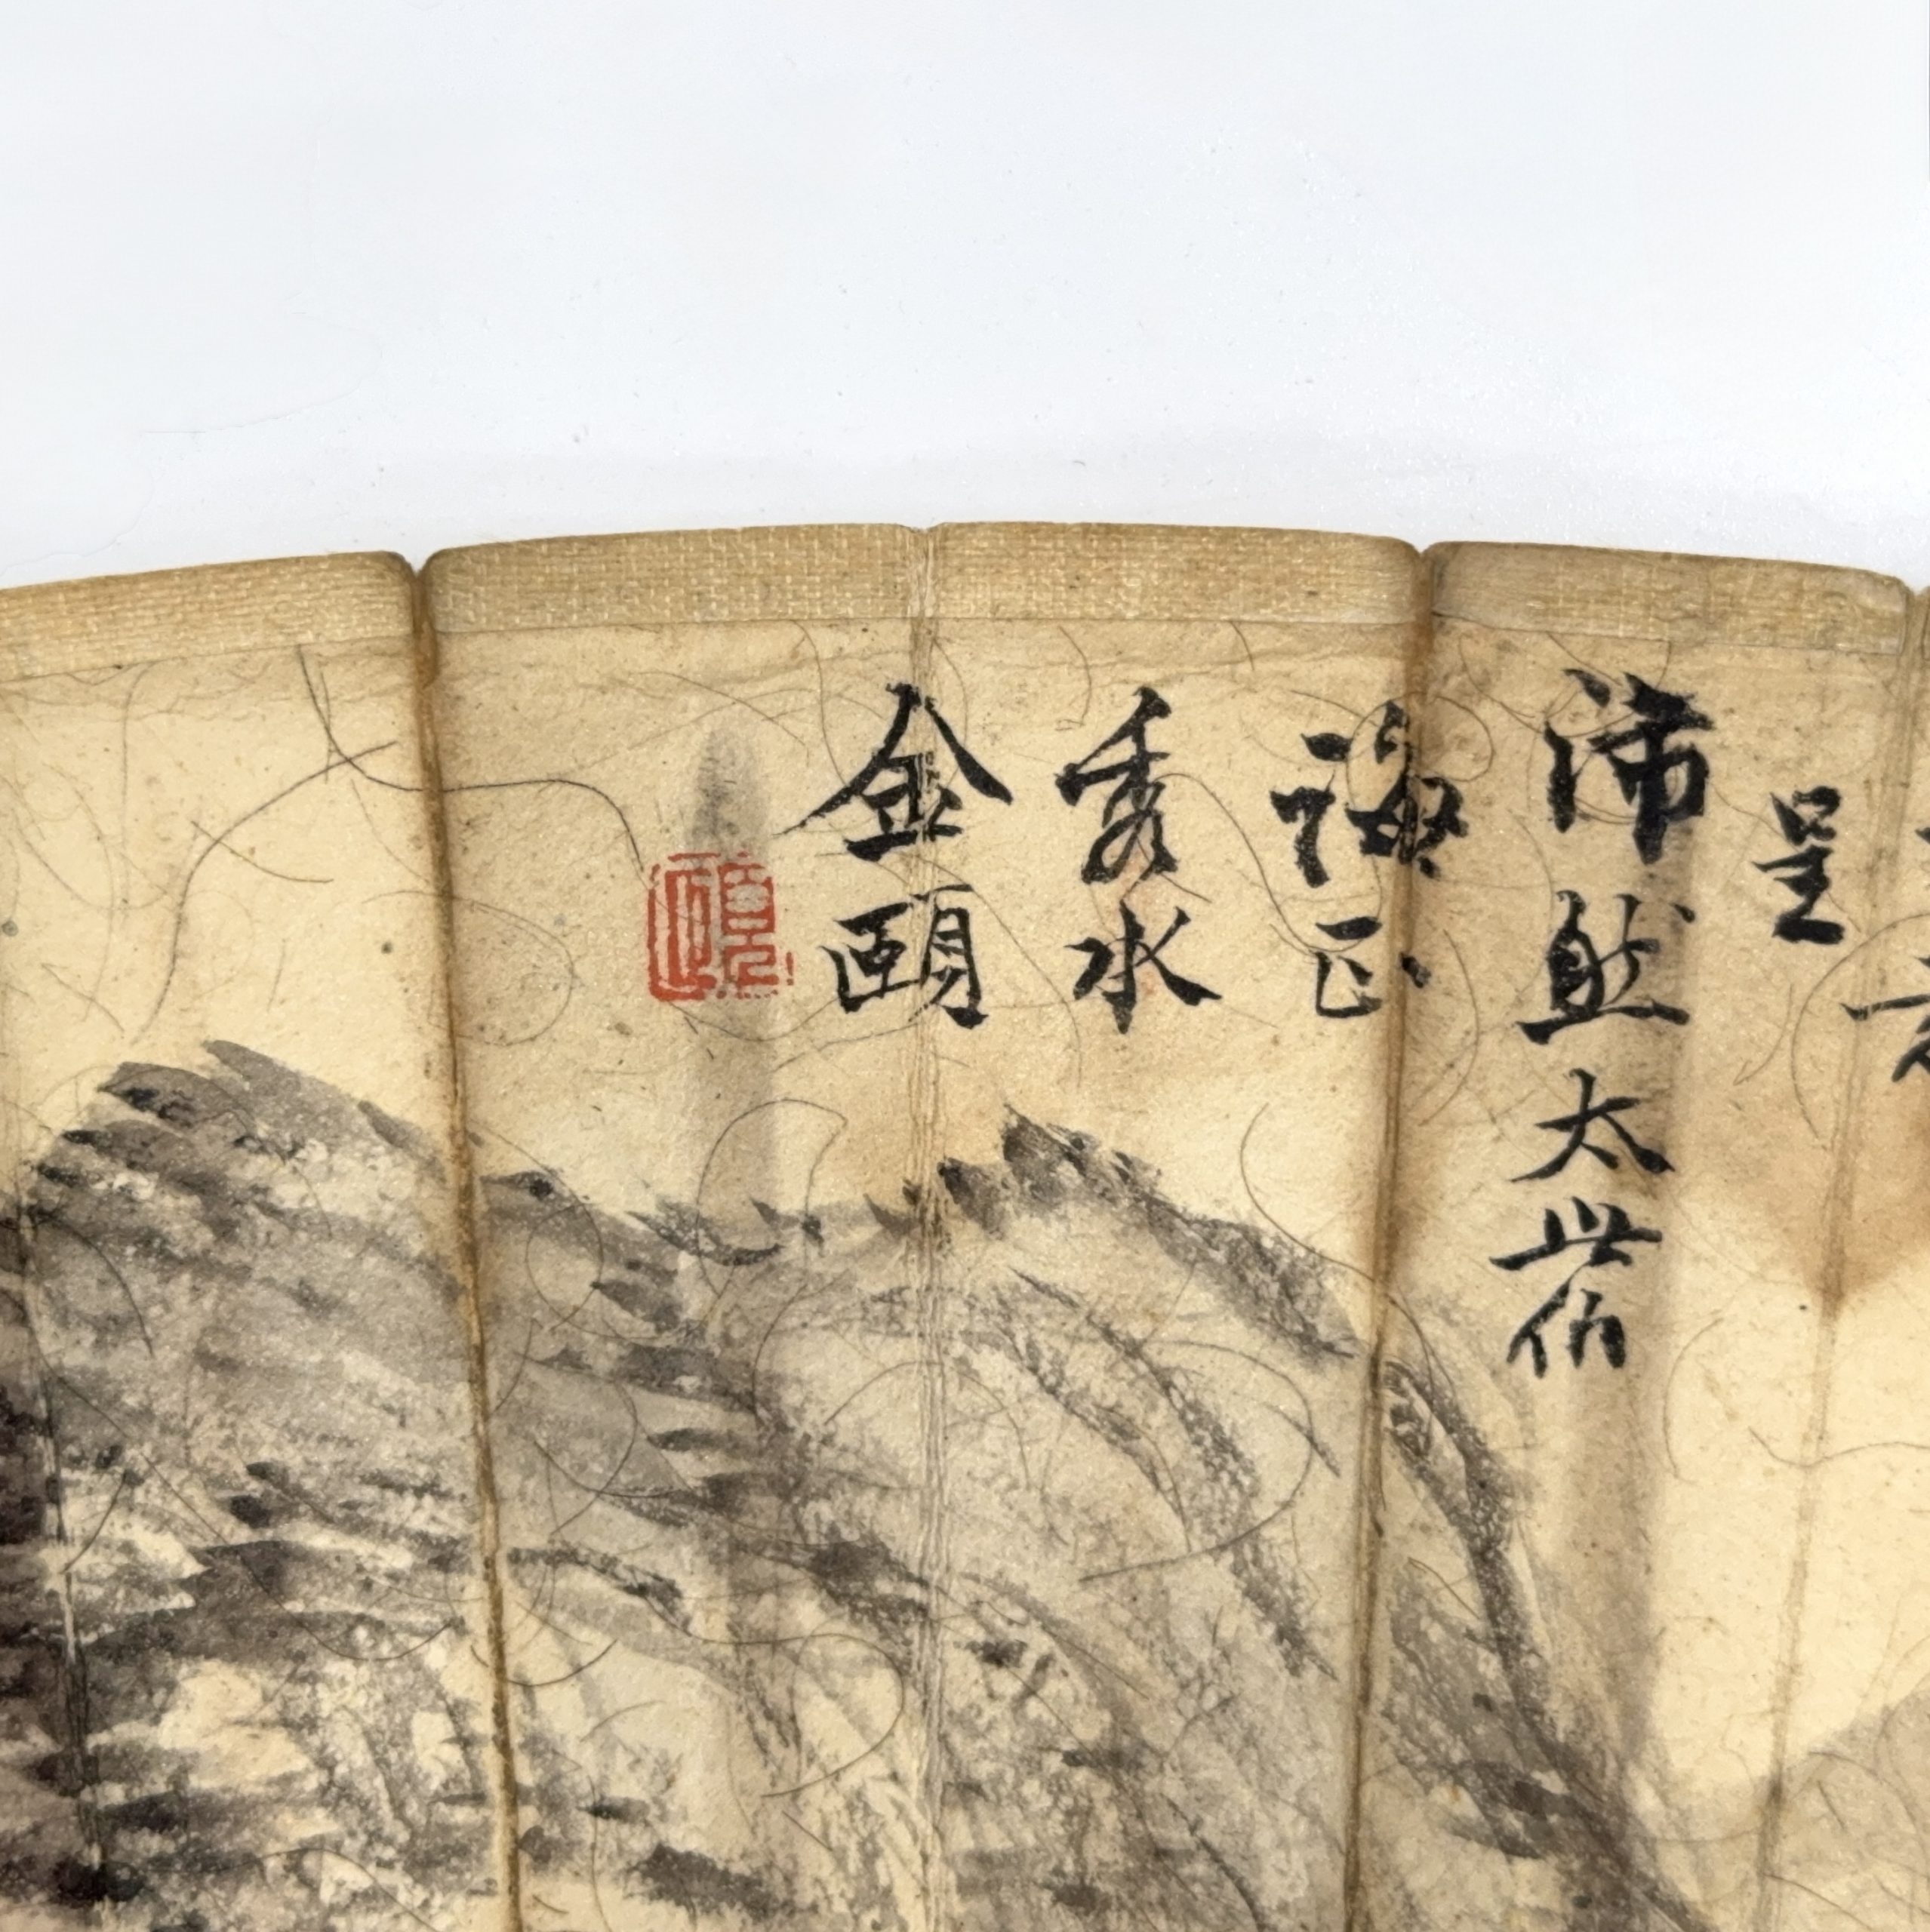 呈
沛然太世伯
誨正
秀水
金頤
頤